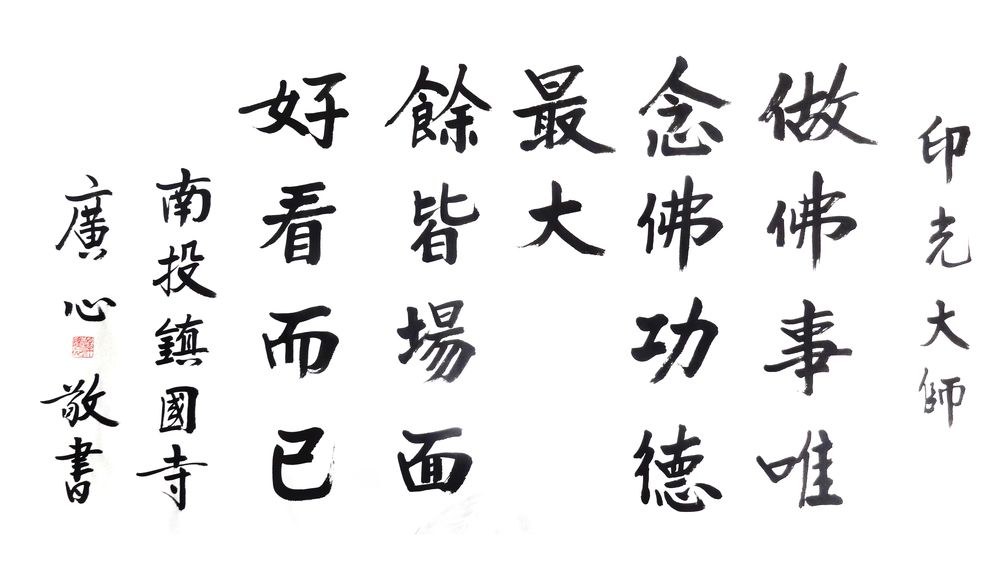 印光大師
做佛事唯
念佛功德
最大
餘皆場面
好看而已
南投鎮國寺
廣心敬書